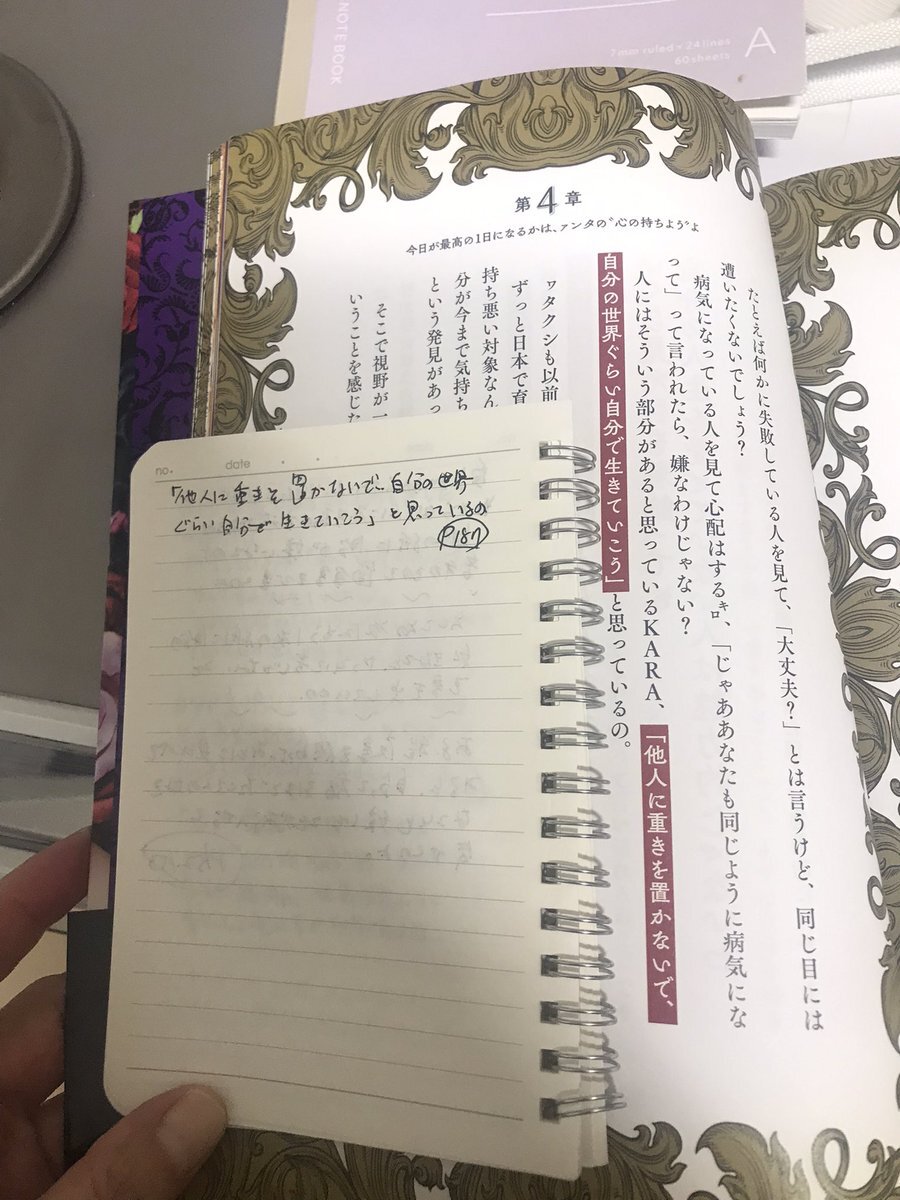 NOTEBOOK
7mm ruled × 24 lines
60 sheets
A
第4章
今日が最高の1日になるかは、ァンタの〝心の持ちよう〟よ
たとえば何かに失敗している人を見て、「大丈夫?」とは言うけど、同じ目には
遭いたくないでしょう?
病気になっている人を見て心配はする㌔、「じゃああなたも同じように病気にな
って」って言われたら、嫌なわけじゃない?
人にはそういう部分があると思っているKARA、「他人に重きを置かないで、
自分の世界ぐらい自分で生きていこう」と思っているの。
ヮタクシも以前
ずっと日本で育
持ち悪い対象なん
分が今まで気持ち
という発見があっ
そこで視野が一
いうことを感じた
no. date
「他人に重きを置かないで、自分の世界
ぐらい自分で生きていこう」と思っているの
P187